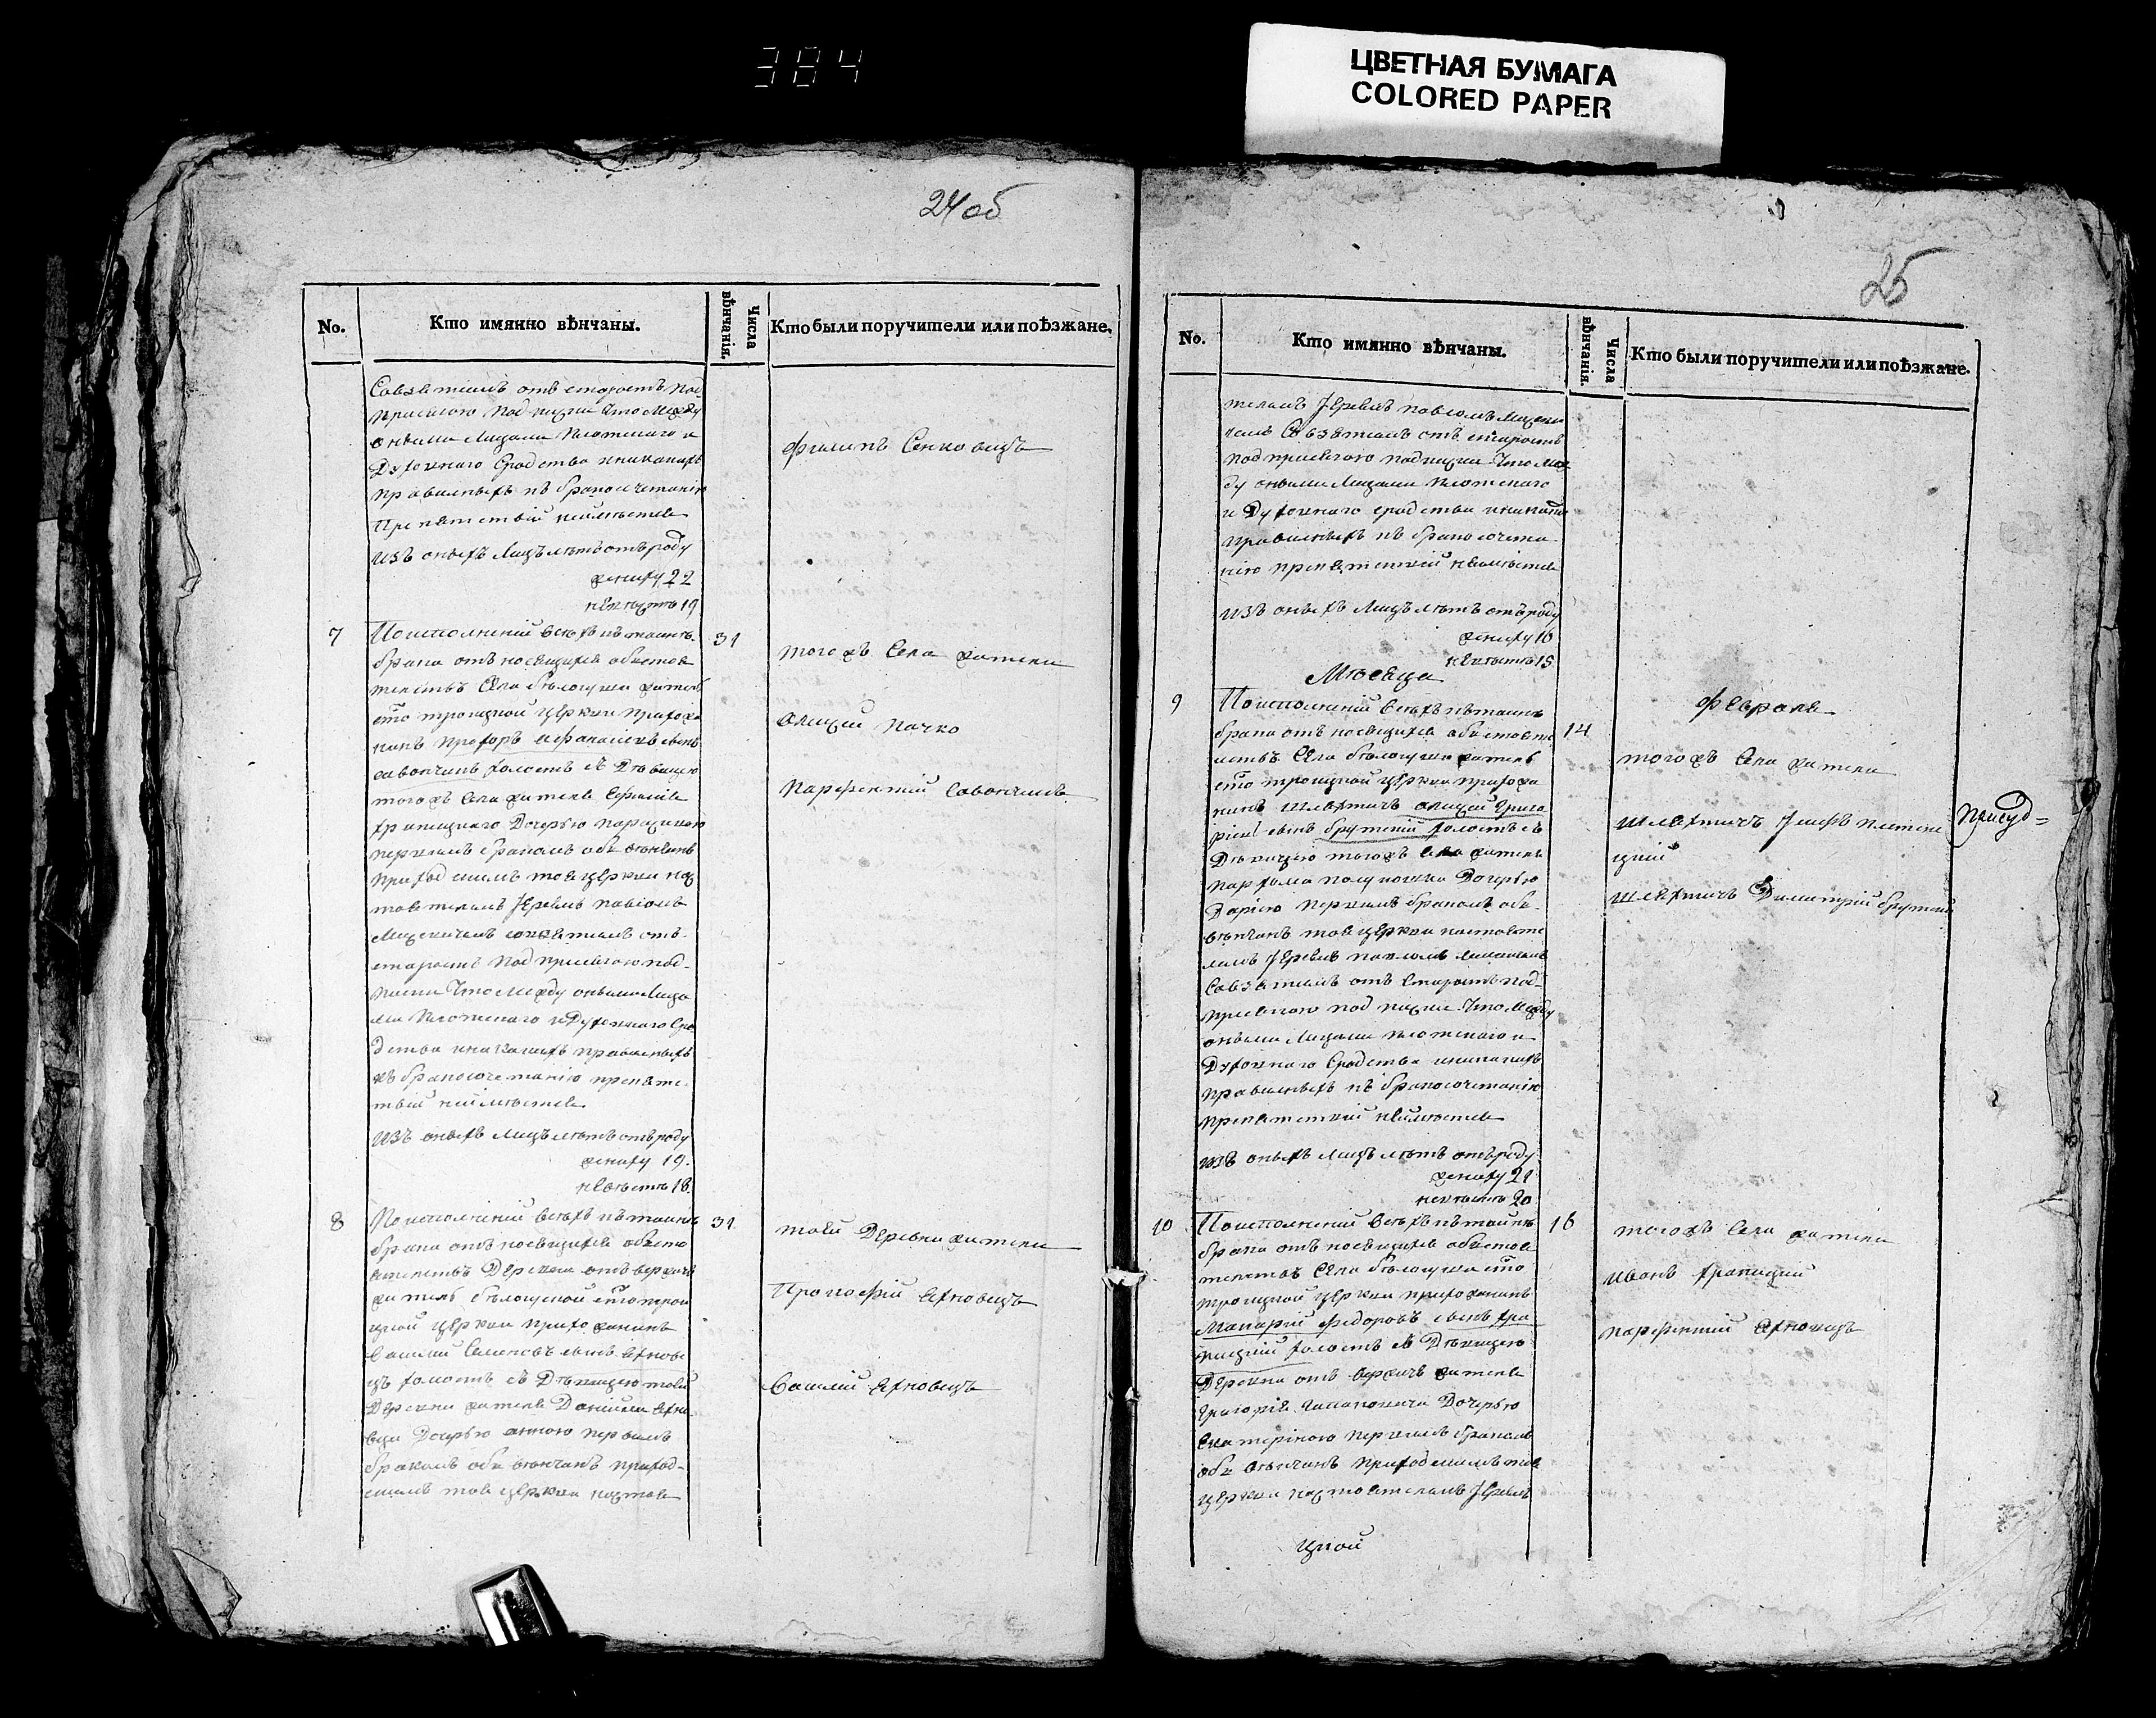 384
ЦВЕТНАЯ БУМАГА
COLORED PAPER
24об
No.
Кто имянно вѣнчаны.
Числа вѣнчанія.
Кто были поручители или поѣзжане.
Совзятіемъ отъ старостъ под
присягою подписки что между
оными лицами плотского и
Духовнаго сродства и никакихъ
правилныхъ къ бракосочетанію
Препятствій неимѣется
изъ оныхъ лицъ лѣтъ отъ роду
жениху 22
невѣстѣ 19
Филипъ Сенковецъ
7
По исполненій всѣхъ къ таинѣ
брака относящихся обстоя
телствъ Села бѣлоуши жител
сто троицкой церкви прихожа
нинъ Прохоръ Афанасіевъ сынъ
савончикъ холостъ съ Дѣвицею
тогожъ Села жителя Ефимія
храпицкаго Дочерью параскою
первымъ бракомъ обы вѣнчанъ
приходскимъ тоя церкви нас
тоятелемъ Іереемъ павломъ
совзятіемъ отъ
старостъ под присягою под-
писки что между оными лица
ми плотского и Духовнаго сро
дства и никакихъ правилныхъ
къ бракосочетанію препятс
твій неимѣется
изъ оныхъ лицъ лѣтъ отъ роду
жениху 19.
невѣстѣ 18.
31
тогожъ Села жители
Алицей пачко
Парфентій Савончикъ
8
По исполненій всѣхъ къ таинѣ
брака относящихся обсто
ятелствъ Деревни отвержичъ
житель бѣлоуской сто трои
цкой церкви прихожанинъ
Василій Семіоновъ сынъ Яхнове
цъ холостъ съ Дѣвицею тоей
Деревни жителя Даніила Яхно
вца Дочерью анною первымъ
бракомъ обы вѣнчанъ приход-
скимъ тоя церкви настоя
31
тоей Деревни жители
Прокофій Яхновецъ
Василій Яхновецъ
25
No.
Кто имянно вѣнчаны.
Числа вѣнчанія.
Кто были поручители или поѣзжане.
телемъ Іереемъ павломъ
Совзятіемъ отъ старостъ
под присягою подписки что меж
ду оными лицами плотского
и Духовнаго сродства и никаких
правилныхъ къ бракосочета
нію препятствій неимѣется
изъ оныхъ лицъ лѣтъ отъ роду
жениху 18
невѣстѣ 18
Мѣсяца
Февраля
9
По исполненій всѣхъ къ таинѣ
брака относящихся обстоятел
ствъ Села бѣлоуши житель
сто троицкой церкви прихожа
нинъ шляхтичъ Алицей Григо
ріевъ сынъ брутскій холостъ съ
Дѣвицею тогожъ Села жителя
пархома полуношка Дочерью
Даріею первымъ бракомъ обы
вѣнчанъ тоя церкви настояте
лемъ Іереемъ павломъ
Совзятіемъ отъ старостъ под-
присягою под писки что между
оными лицами плотского и
Духовнаго сродства и никакихъ
правилныхъ къ бракосочетанію
препятствій неимѣется
изъ оныхъ лицъ лѣтъ отъ роду
жениху 21
невѣстѣ 20
14
тогожъ Села жители
шляхтичъ
цкій
шляхтичъ Димитрій брутскій
10
По исполненій всѣхъ къ таинѣ
брака относящихся обстоя
телствъ Села бѣлоуши сто
троицкой церкви прихожанинъ
Макарій Федоровъ сынъ хра
пицкій холостъ съ Дѣвицею
Деревни отвержичъ жителя
Григорія Дочерью
Екатериною первымъ бракомъ
обы вѣнчанъ приходскимъ тоя
церкви настоятелемъ Іереемъ
16
тогожъ Села жители
Иванъ храпицкій
парфентій Яхновецъ
цкой